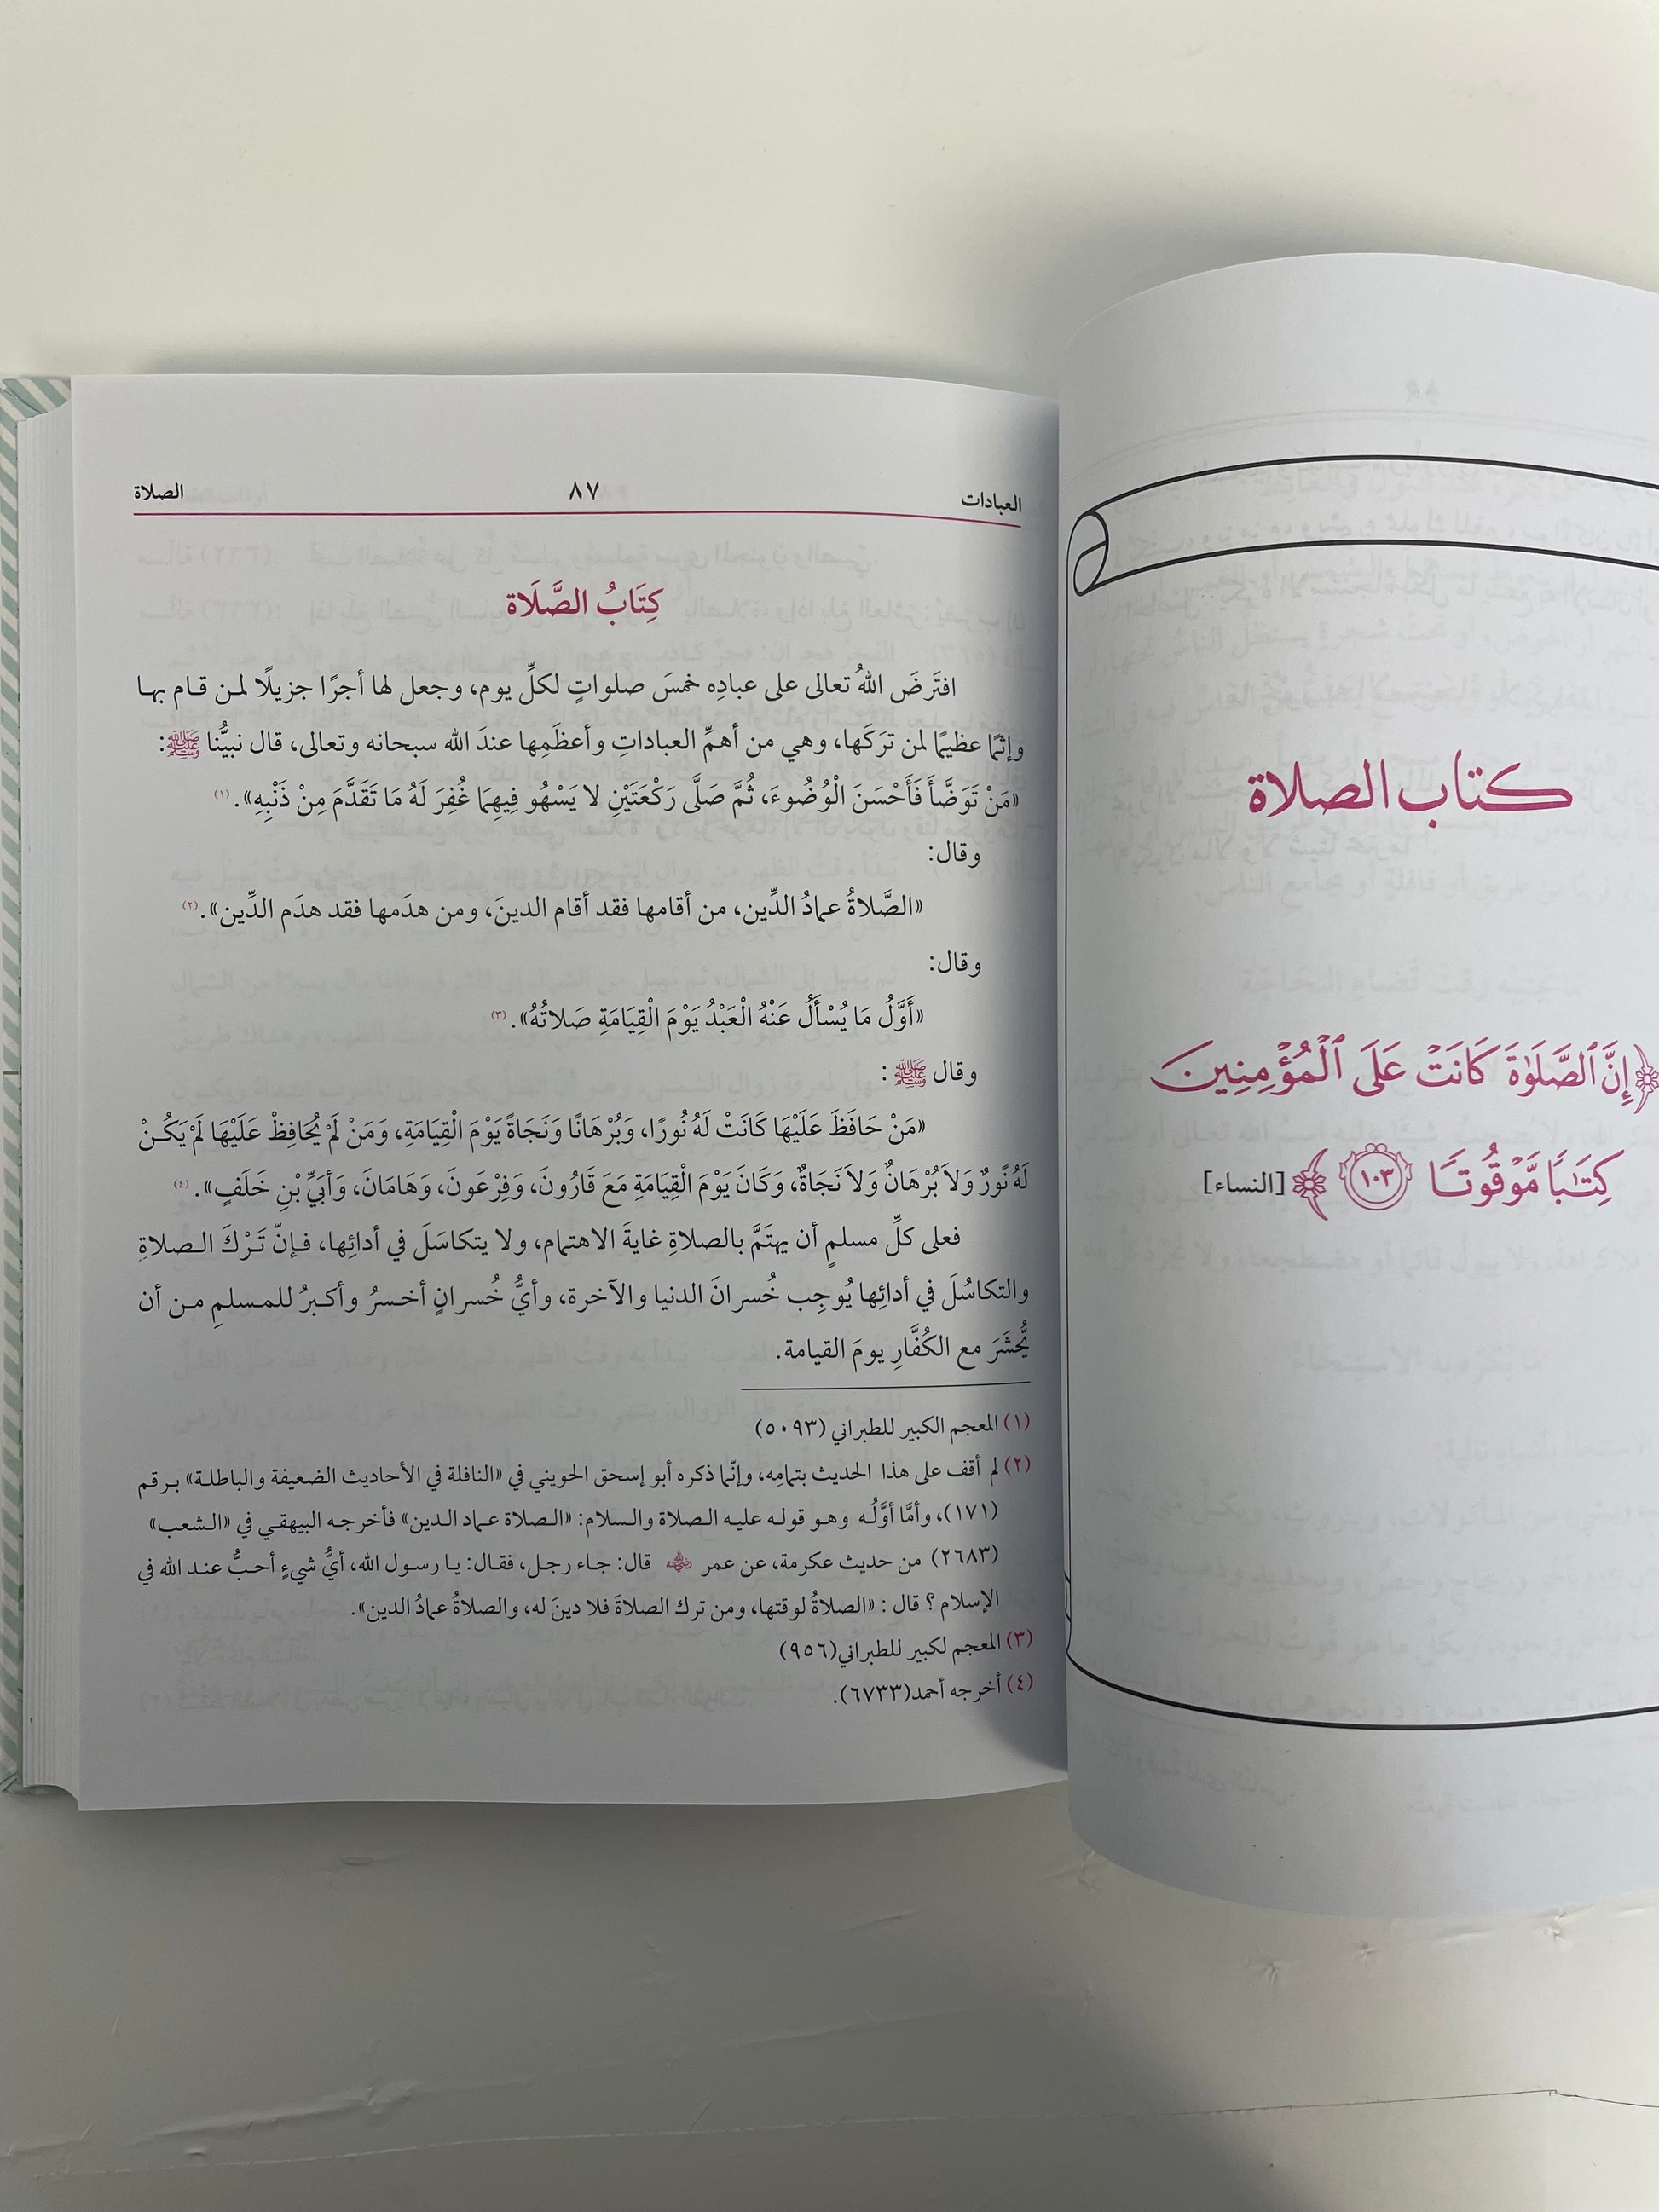 كتاب الصلاة
﴿إِنَّ ٱلصَّلَوٰةَ كَانَتْ عَلَى ٱلْمُؤْمِنِينَ
كِتَٰبًا مَّوْقُوتًا ١٠٣﴾ [النساء]
العبادات ٨٧ الصلاة
كِتَابُ الصَّلَاة
افتَرضَ اللهُ تعالى على عبادِه خمسَ صلواتٍ لكلِّ يوم، وجعل لها أجرًا جزيلًا لمن قام بها
وإثمًا عظيمًا لمن ترَكَها، وهي من أهمِّ العباداتِ وأعظَمِها عندَ الله سبحانه وتعالى، قال نبيُّنا ﷺ:
«مَنْ تَوَضَّأَ فَأَحْسَنَ الْوُضُوءَ، ثُمَّ صَلَّى رَكْعَتَيْنِ لا يَسْهُو فِيهِمَا غُفِرَ لَهُ مَا تَقَدَّمَ مِنْ ذَنْبِهِ».(١)
وقال:
«الصَّلاةُ عمادُ الدِّين، من أقامها فقد أقام الدينَ، ومن هدَمها فقد هدَم الدِّين».(٢)
وقال:
«أَوَّلُ مَا يُسْأَلُ عَنْهُ الْعَبْدُ يَوْمَ الْقِيَامَةِ صَلاتُهُ».(٣)
وقال ﷺ:
«مَنْ حَافَظَ عَلَيْهَا كَانَتْ لَهُ نُورًا، وَبُرْهَانًا وَنَجَاةً يَوْمَ الْقِيَامَةِ، وَمَنْ لَمْ يُحَافِظْ عَلَيْهَا لَمْ يَكُنْ
لَهُ نُورٌ وَلاَ بُرْهَانٌ وَلاَ نَجَاةٌ، وَكَانَ يَوْمَ الْقِيَامَةِ مَعَ قَارُونَ، وَفِرْعَونَ، وَهَامَانَ، وَأُبَيِّ بْنِ خَلَفٍ».(٤)
فعلى كلِّ مسلمٍ أن يهتَمَّ بالصلاةِ غايةَ الاهتمام، ولا يتكاسَلَ في أدائِها، فإنّ تَرْكَ الصلاةِ
والتكاسُلَ في أدائِها يُوجِب خُسرانَ الدنيا والآخرة، وأيُّ خُسرانٍ أخسرُ وأكبرُ للمسلمِ من أن
يُّحشَرَ مع الكُفَّارِ يومَ القيامة.
(١) المعجم الكبير للطبراني (٥٠٩٣)
(٢) لم أقف على هذا الحديث بتمامِه، وإنّما ذكره أبو إسحق الحويني في «النافلة في الأحاديث الضعيفة والباطلة» برقم
(١٧١)، وأمَّا أوَّلُه وهو قوله عليه الصلاة والسلام: «الصلاة عماد الدين» فأخرجه البيهقي في «الشعب»
(٢٦٨٣) من حديث عكرمة، عن عمر رضي الله عنه قال: جاء رجل، فقال: يا رسول الله، أيُّ شيءٍ أحبُّ عند الله في
الإسلام؟ قال: «الصلاةُ لوقتها، ومن ترك الصلاةَ فلا دينَ له، والصلاةُ عمادُ الدين».
(٣) المعجم لكبير للطبراني(٩٥٦)
(٤) أخرجه أحمد(٦٧٣٣).